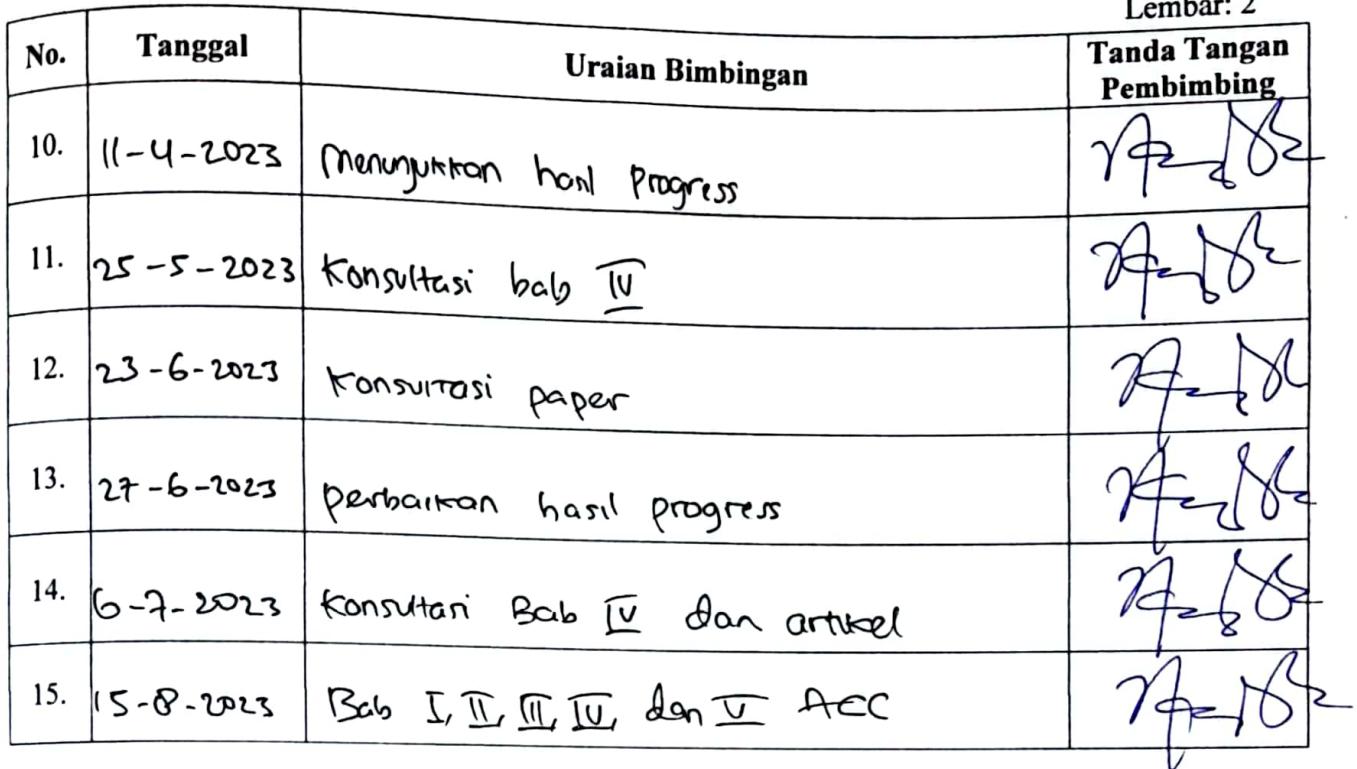 Lembar: 2
No. Tanggal Uraian Bimbingan Tanda Tangan Pembimbing
10. 11-4-2023 Menunjukkan hasil progress
11. 25-5-2023 Konsultasi bab IV
12. 23-6-2023 Konsultasi paper
13. 27-6-2023 perbaikan hasil progress
14. 6-7-2023 Konsultasi Bab IV dan artikel
15. 15-8-2023 Bab I, II, III, IV, dan V ACC